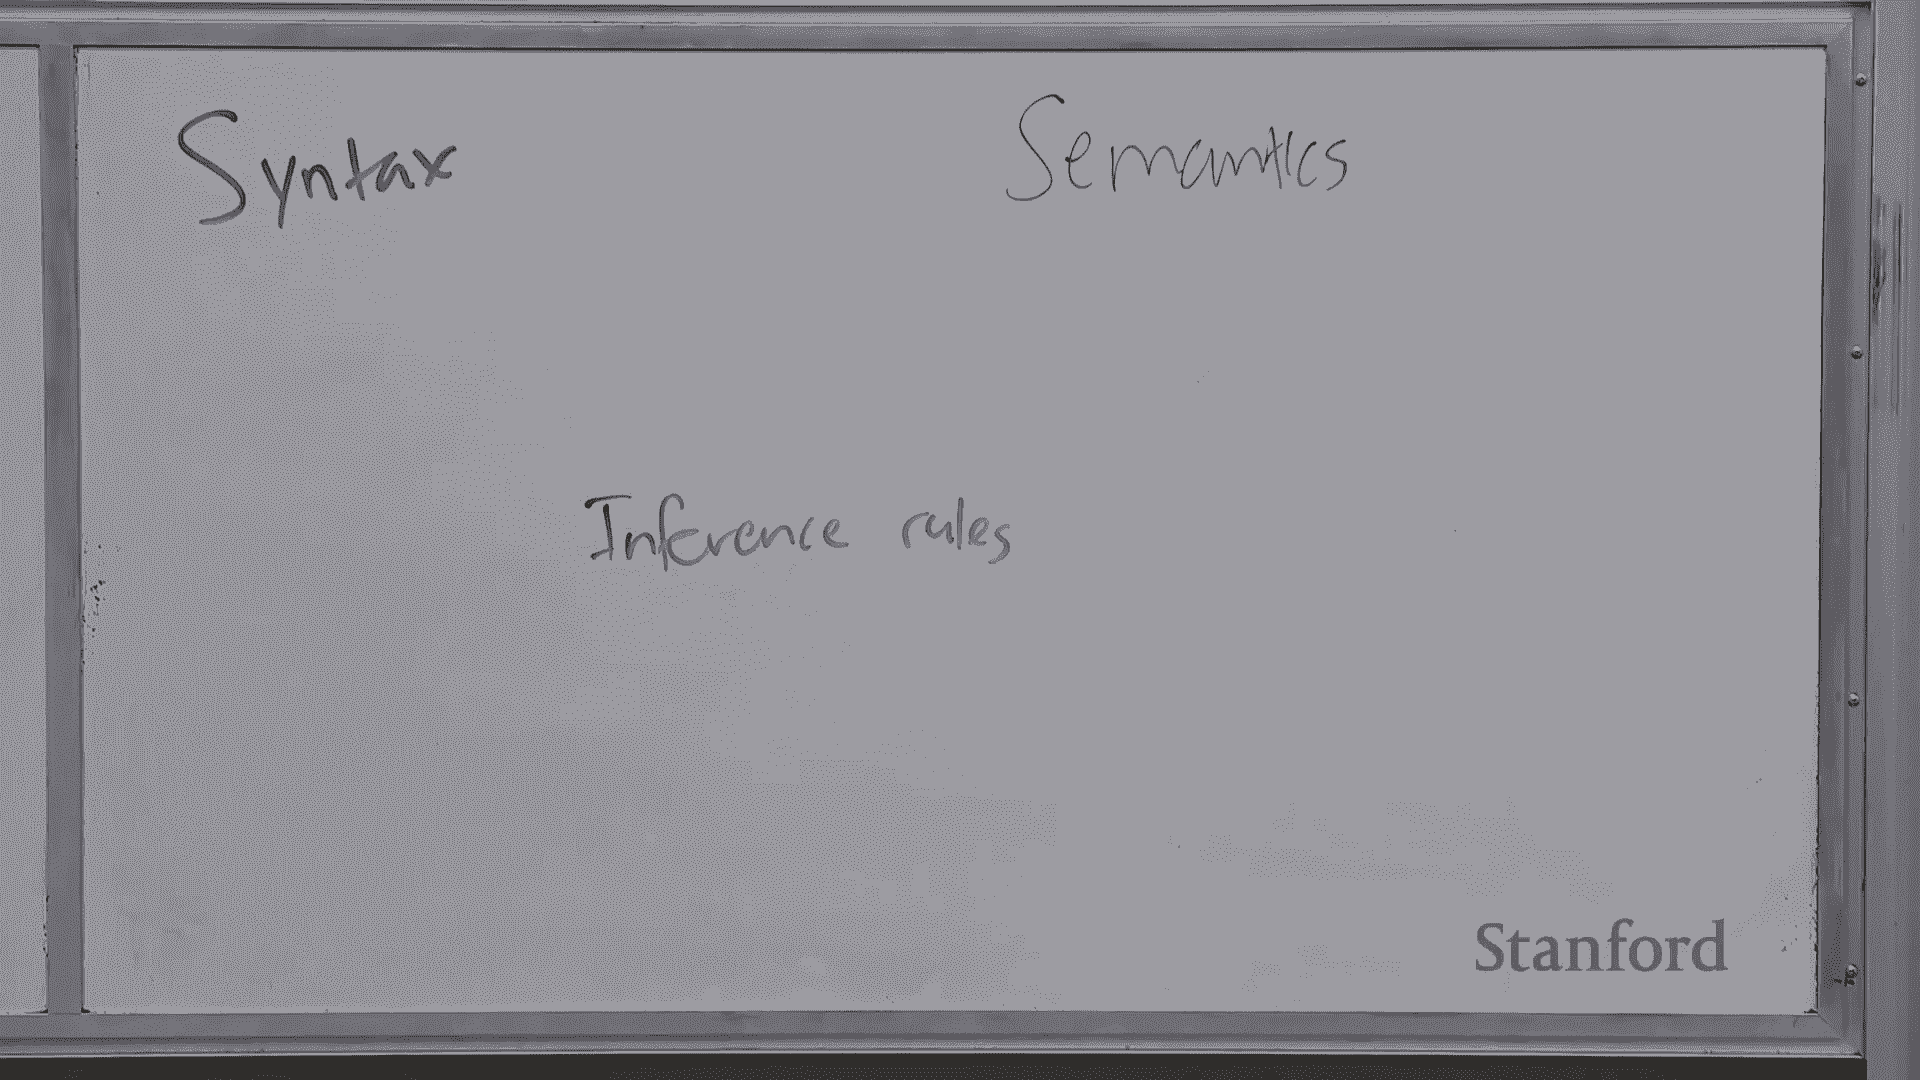 Syntax Semantics
Inference rules
Stanford